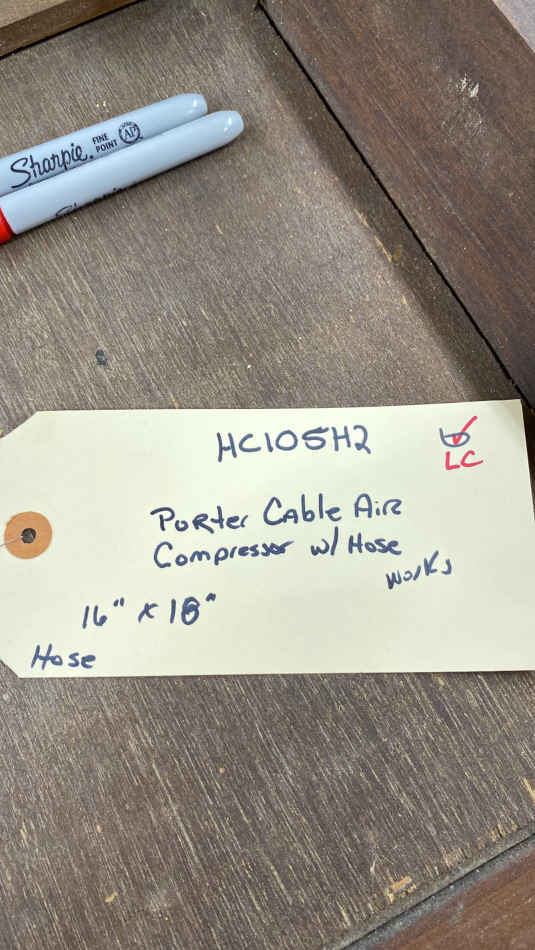 Sharpie. FINE POINT AP
Sharpie
HC105H2
LC
Porter Cable Air
Compressor w/ Hose
Works
16" x 18"
Hose